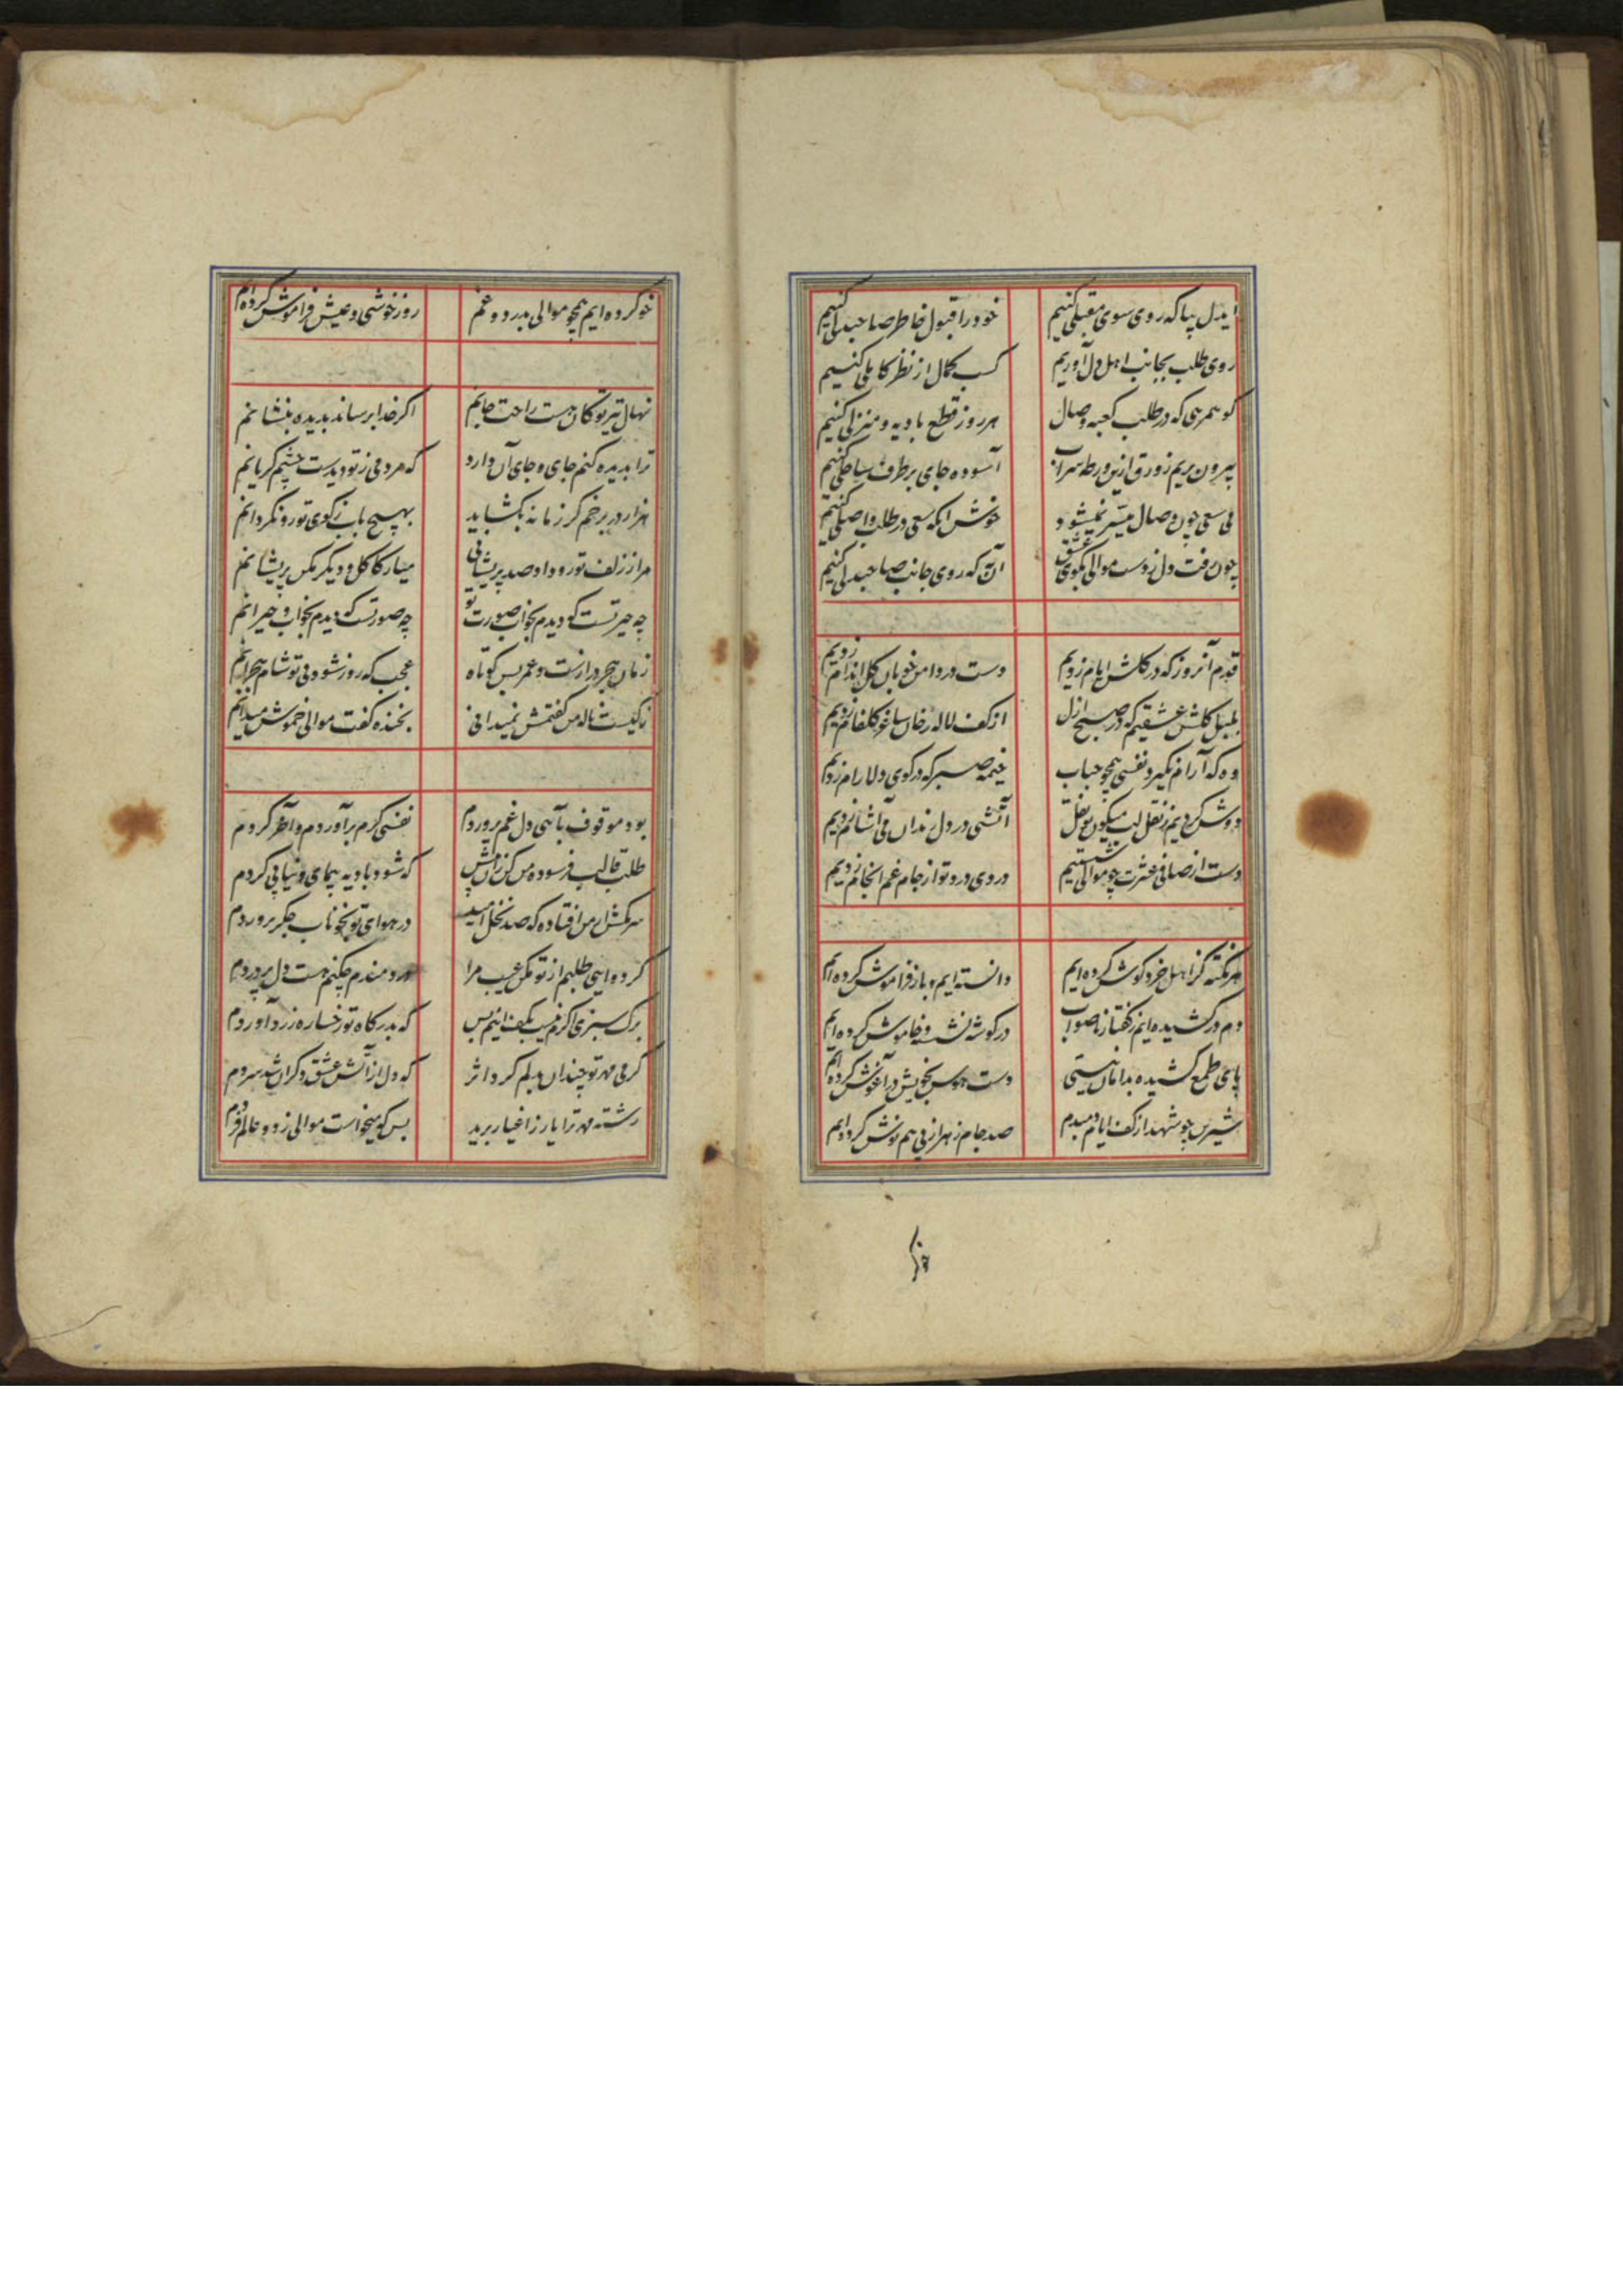 ایدل بیا که روی سوی مقبلی کنیم خود را قبول خاطر صاحبدلی کنیم
روی طلب بجانب اهل دل آوریم کسب کمال از نظر کاملی کنیم
کو همرهی که در طلب کعبه وصال هر روز قطع بادیه و منزلی کنیم
بیرون بریم زورق ازین ورطه سراب آسوده جای بر طرف ساحلی کنیم
بی سعی چون وصال میسر نمیشود خوش آنکه سعی در طلب واصلی کنیم
چون رفت دل ز دست موالی بکوی عشق آن به که روی جانب صاحبدلی کنیم
قدم آنروز که در کلشن ایام زدیم دست در دامن خوبان کل اندام زدیم
بلبل کلشن عشقیم که در صبح ازل از کف لاله رخان ساغر کلفام زدیم
وه که آرام نکیرد نفسی همچو حباب خیمه صبر که در کوی دلارام زدیم
دوش کردیم ز نقل لب میکون تو نقل آتشی در دل رندان می آشام زدیم
دست از صافی عشرت چو موالی شستیم دردی درد تو از جام غم انجام زدیم
هر نکته کز اهل خرد کوش کرده ایم دانسته ایم و باز فراموش کرده ایم
دم در کشیده ایم ز کفتار ناصواب در کوشه نشسته و خاموش کرده ایم
پای طمع کشیده بدامان نیستی دست هوس بخویش در آغوش کرده ایم
شیرین چو شهد از کف ایام دمبدم صد جام زهر از پی هم نوش کرده ایم
خو
خو کرده ایم همچو موالی بدرد و غم روز خوشی و عیش فراموش کرده ایم
نهال تیر تو کان هست راحت جانم اکر خدا برساند بدیده بنشانم
ترا بدیده کنم جای و جای آن دارد که مردمی ز تو دیدست چشم کریانم
هزار در برخم کر زمانه بکشاید بهیچ باب ز کوی تو رو نکردانم
مرا ز زلف تو رو داد صد پریشانی میار کاکل و دیکر مکن پریشانم
چه حیرتست که دیدم بخواب صورت تو چه صورتست که دیدم بخواب و حیرانم
زمان هجر درازست و عمر بس کوتاه عجب که روز شود بی تو شام هجرانم
ز کیست ناله من کفتمش نمیدانی بخنده کفت موالی خموش میدانم
بود موقوف بآهی دل غم پروردم نفسی کرم برآوردم و آخر کردم
طلب قالب فرسوده من کن زان پیش که شود بادیه پیمای فنا پی کردم
سر مکش از من افتاده که صد نخل امید در هوای تو بخوناب جکر پروردم
کر دوایی طلبم از تو مکن عیب مرا دردمندم چکنم هست دل پر دردم
برک سبزی اکرم نیست بکف اینم بس که بدرکاه تو رخساره زرد آوردم
کرمی مهر تو چندان بدلم کرد اثر که دل از آتش عشق دکران شد سردم
رشته مهر ترا یار ز اغیار برید بس که میخواست موالی ز دو عالم فردم